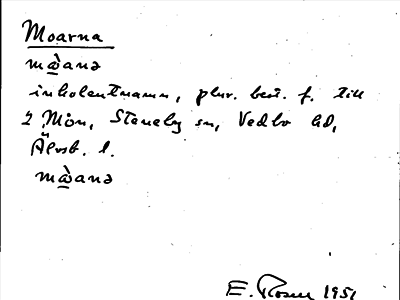 Moarna
mⱥ̀anə
inkolentnamn, plur. best. f. till
2 Mon, Steneby sn, Vedbo hd,
Älvsb. l.
E. Rosen 1951